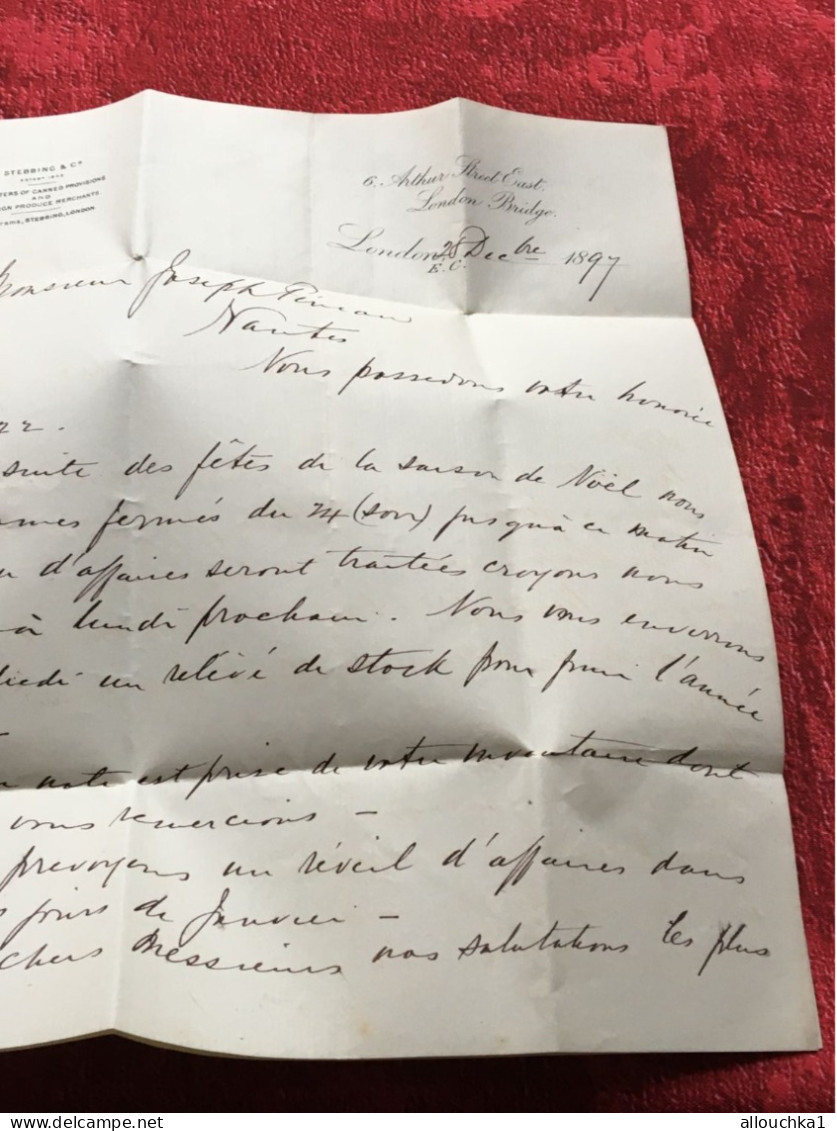 STEBBING & Co
TERS OF CANNED PROVISIONS
AND
IGN PRODUCE MERCHANTS
STEBBING, LONDON
6. Arthur Street East.
London Bridge.
London 28 Decbre 1897
E.C.
Monsieur Joseph Pineau
Nantes
Nous possedons votre honorée
22.
suite des fêtes de la saison de Nöel nous
mes fermés du 24 (soir) jusqu'à ce matin
d'affaires seront traitées croyons nous
à lundi prochain. Nous vous enverrons
un relévé de stock pour finir l'année
note est prise de votre inventaire dont
vous remercions -
prevoyons un réveil d'affaires dans
s jours de Janvier -
chers Messieurs nos salutations les plus
allouchka1